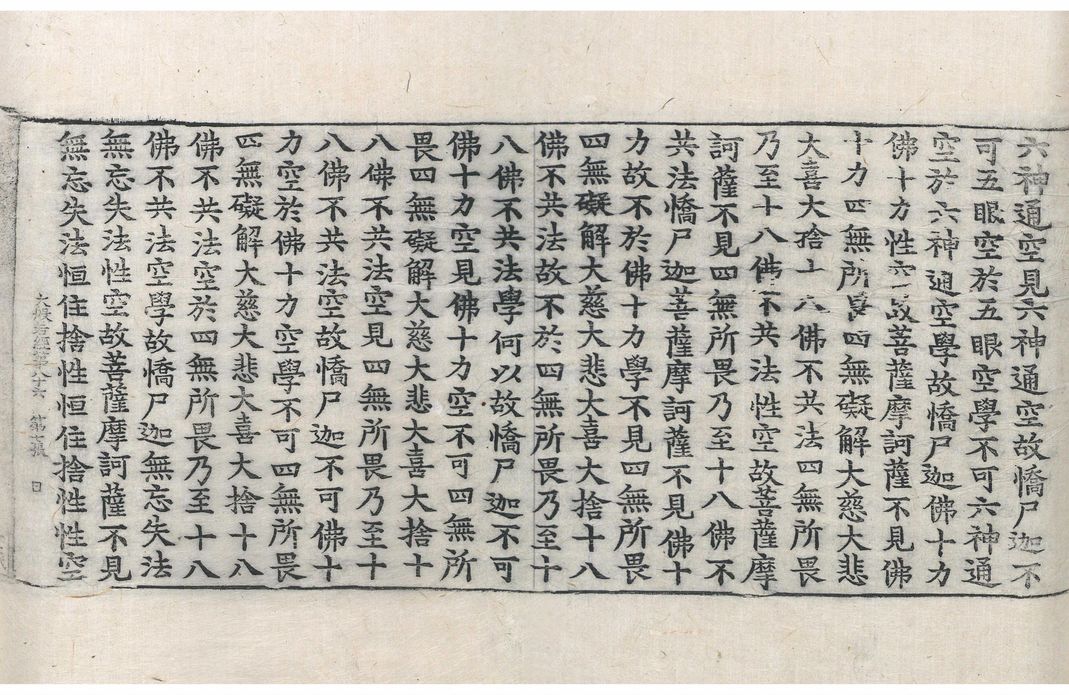 六神通空見六神通空故憍尸迦不
可五眼空於五眼空學不可六神通
空於六神通空學故憍尸迦佛十力
佛十力性空故菩薩摩訶薩不見佛
十力四無所畏四無礙解大慈大悲
大喜大捨十八佛不共法四無所畏
乃至十八佛不共法性空故菩薩摩
訶薩不見四無所畏乃至十八佛不
共法憍尸迦菩薩摩訶薩不見佛十
力故不於佛十力學不見四無所畏
四無礙解大慈大悲大喜大捨十八
佛不共法故不於四無所畏乃至十
八佛不共法學何以故憍尸迦不可
佛十力空見佛十力空不可四無所
畏四無礙解大慈大悲大喜大捨十
八佛不共法空見四無所畏乃至十
八佛不共法空故憍尸迦不可佛十
力空於佛十力空學不可四無所畏
四無礙解大慈大悲大喜大捨十八
佛不共法空於四無所畏乃至十八
佛不共法空學故憍尸迦無忘失法
無忘失法性空故菩薩摩訶薩不見
無忘失法恒住捨性恒住捨性性空
大般若經第八十六 第 張 日